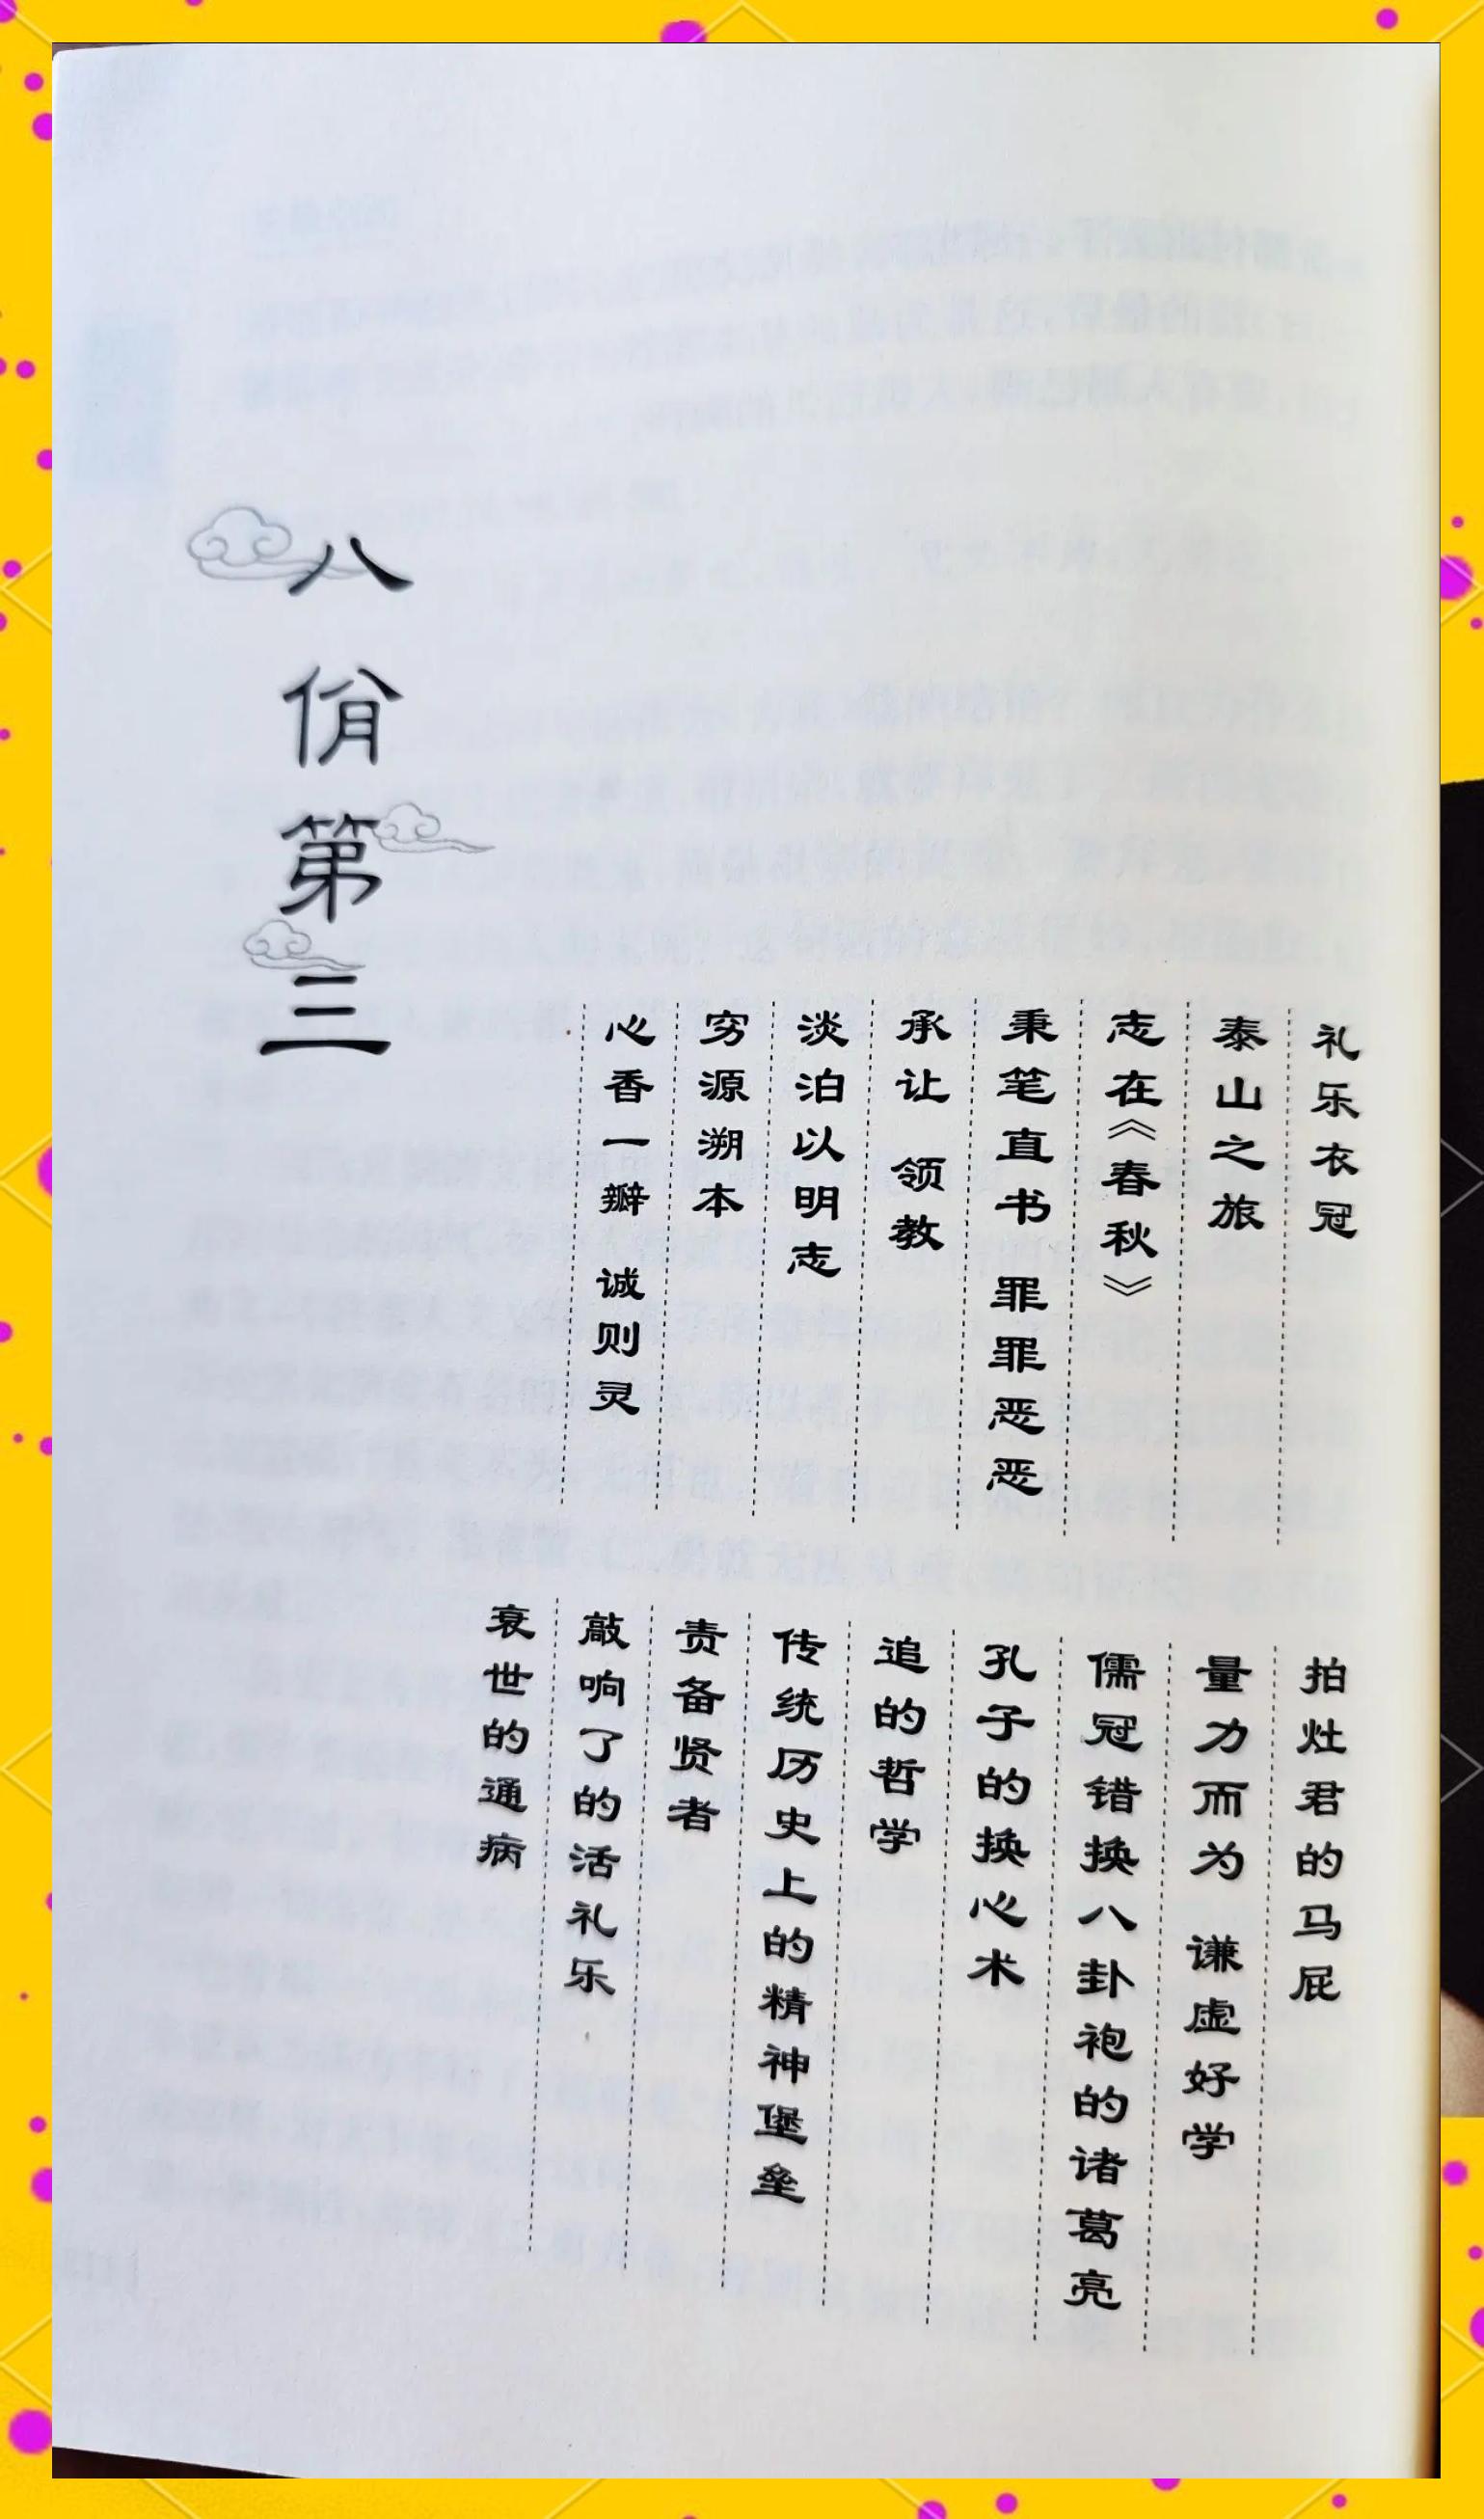 八佾第三
礼乐衣冠
泰山之旅
志在《春秋》
秉笔直书 罪罪恶恶
承让 领教
淡泊以明志
穷源溯本
心香一瓣 诚则灵
拍灶君的马屁
量力而为 谦虚好学
儒冠错换八卦袍的诸葛亮
孔子的换心术
追的哲学
传统历史上的精神堡垒
责备贤者
敲响了的活礼乐
衰世的通病